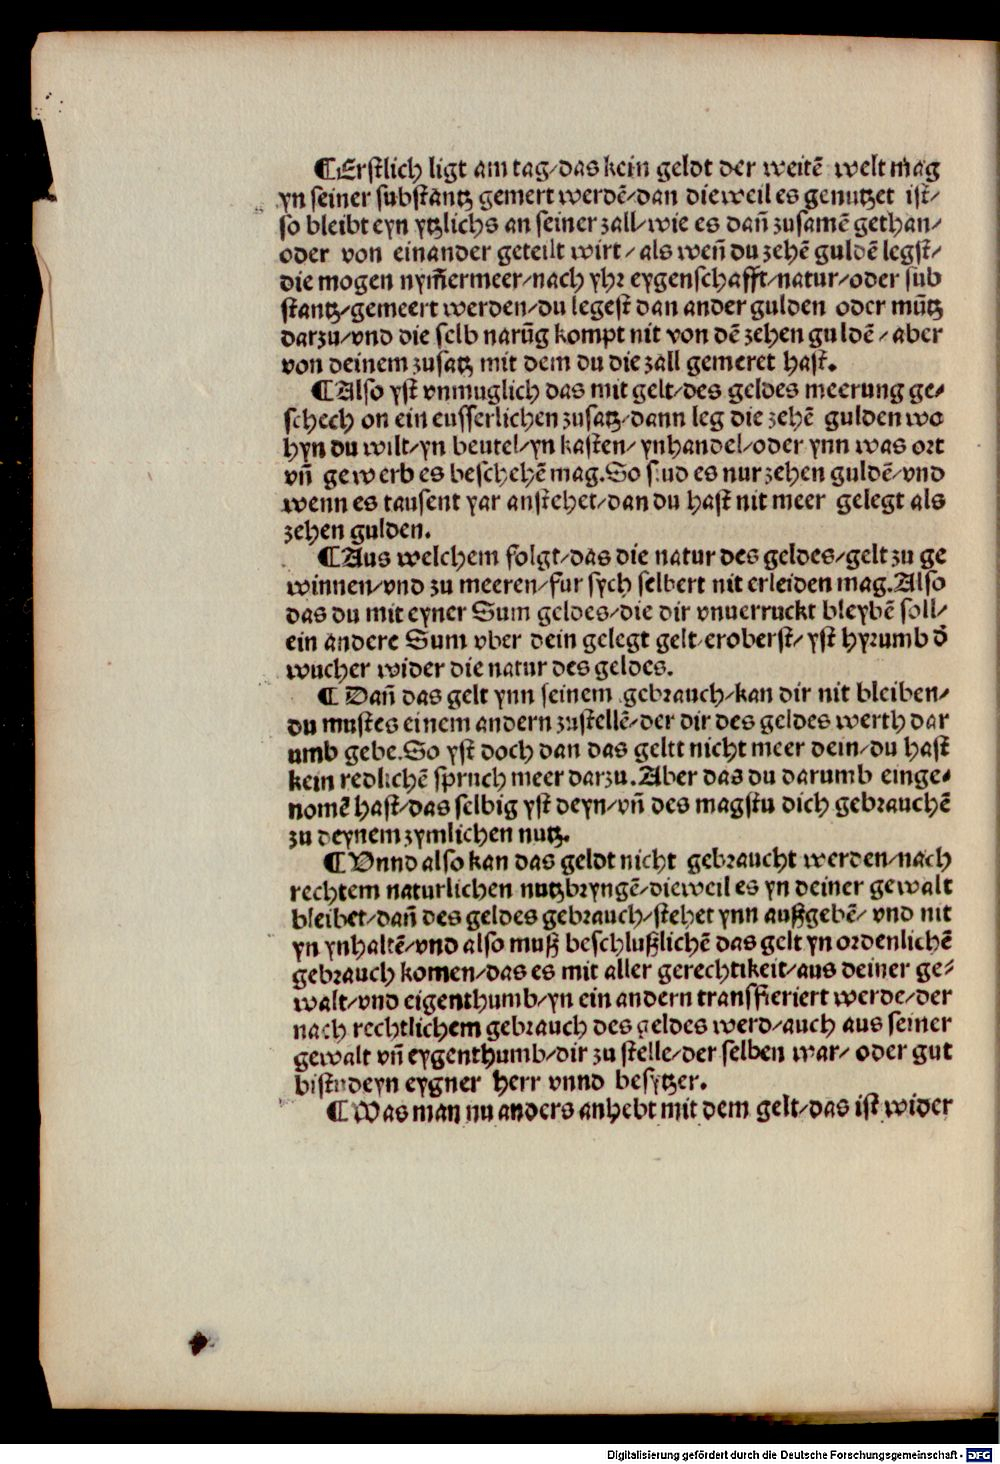 ¶Erstlich ligt am tag/das kein geldt der weitē welt mag
yn seiner substantz gemert werdē/dan dieweil es genutzet ist/
so bleibt eyn ytzlichs an seiner zall/wie es dañ zusamē gethan/
oder von einander geteilt wirt/als weñ du zehē guldē legst/
die mogen nym̄ermeer/nach yhr eygenschafft/natur/oder sub
stantz/gemeert werden/du legest dan ander gulden oder mūtz
darzu/vnd die selb narūg kompt nit von dē zehen guldē/aber
von deinem zusatz mit dem du die zall gemeret hast.
¶Also yst vnmuglich das mit gelt/des geldes meerung ge⸗
schech on ein eusserlichen zusatz/dann leg die zehē gulden wo
hyn du wilt/yn beutel/yn kasten/ynhandel/oder ynn was ort
vñ gewerb es beschehē mag.So sind es nur zehen guldē/vnd
wenn es tausent yar anstehet/dan du hast nit meer gelegt als
zehen gulden.
¶Aus welchem folgt/das die natur des geldes/gelt zu ge
winnen/vnd zu meeren/fur sych selbert nit erleiden mag.Also
das du mit eyner Sum geldes/die dir vnuerruckt bleybē soll/
ein andere Sum vber dein gelegt gelt eroberst/yst hyrumb d̄
wucher wider die natur des geldes.
¶ Dañ das gelt ynn seinem gebrauch/kan dir nit bleiben/
du mustes einem andern zustellē/der dir des geldes werth dar
umb gebe.So yst doch dan das geltt nicht meer dein/du hast
kein redlichē spruch meer darzu.Aber das du darumb einge⸗
nomē hast/das selbig yst deyn/vñ des magstu dich gebrauchē
zu deynem zymlichen nutz.
¶Vnnd also kan das geldt nicht gebraucht werden/nach
rechtem naturlichen nutzbryngē/dieweil es yn deiner gewalt
bleibet/dañ des geldes gebrauch/stehet ynn außgebē/vnd nit
yn ynhaltē/vnd also muß beschlußlichē das gelt yn ordenlichē
gebrauch komen/das es mit aller gerechtikeit/aus deiner ge⸗
walt/vnd eigenthumb/yn ein andern transfieriert werde/der
nach rechtlichem gebrauch des geldes werd/auch aus seiner
gewalt vñ eygenthumb/dir zu stelle/der selben war/oder gut
bistu deyn eygner herr vnnd besytzer.
¶Was man nu anders anhebt mit dem gelt/das ist wider
Digitalisierung gefördert durch die Deutsche Forschungsgemeinschaft - DFG